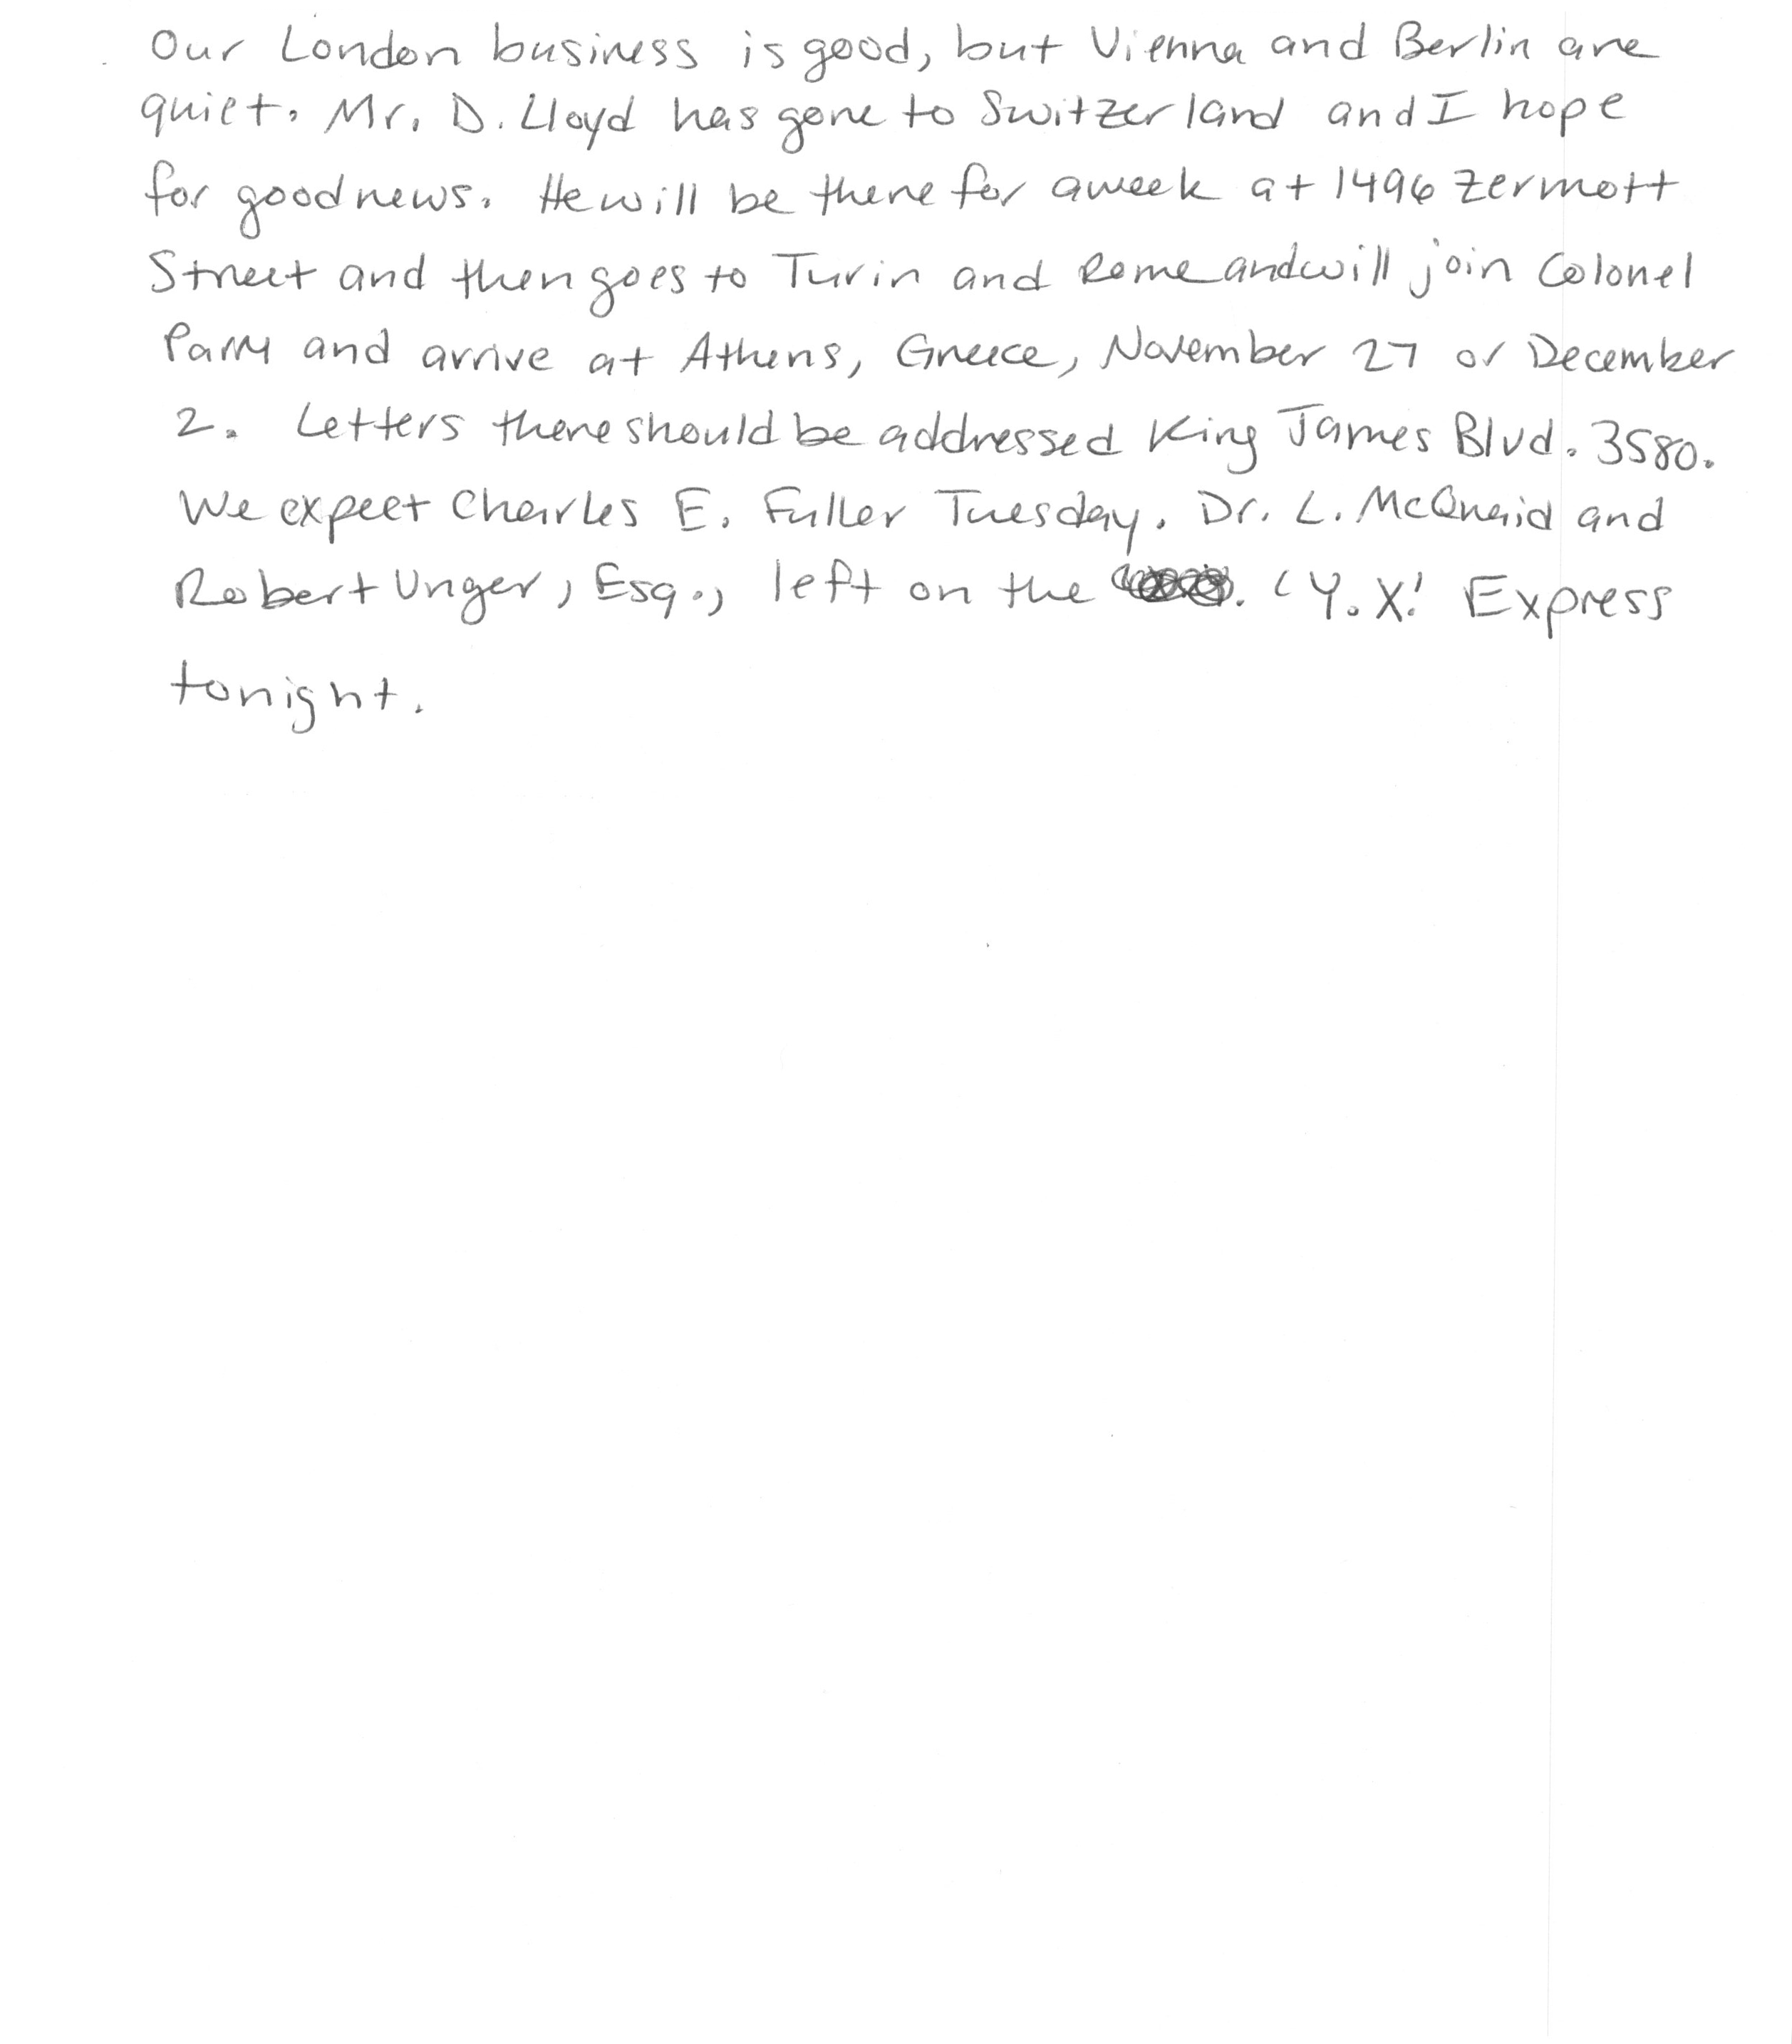 Our London business is good, but Vienna and Berlin are
quiet. Mr. D. Lloyd has gone to Switzerland and I hope
for good news. He will be there for a week at 1496 Zermott
Street and then goes to Turin and Rome and will join Colonel
Parry and arrive at Athens, Greece, November 27 or December
2. Letters there should be addressed King James Blvd. 3580.
We expect Charles E. Fuller Tuesday. Dr. L. McQuaid and
Robert Unger, Esq., left on the 'Y.X.' Express
tonight.